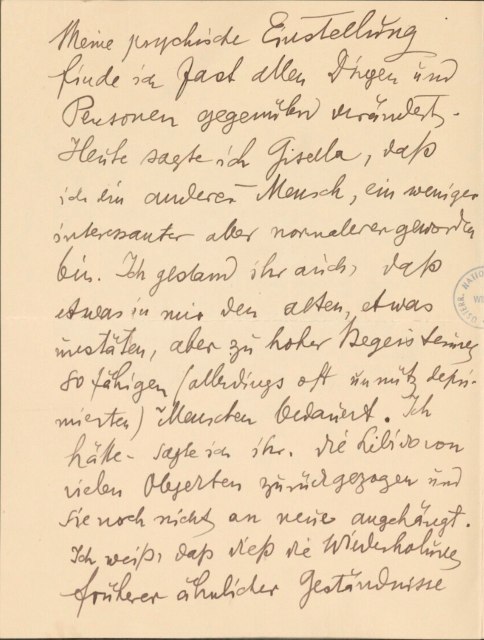 Meine psychische Einstellung
finde ich fast allen Dingen und
Personen gegenüber verändert.
Heute sagte ich Gisella, daß
ich ein anderer Mensch, ein weniger
interessanter aber normalerer geworden
bin. Ich gestand ihr auch, daß
etwas in mir den alten, etwas
unstäten, aber zu hoher Begeisterung
so fähigen (allerdings oft unnütz depri-
mierten) Menschen bedauert. Ich
hätte - sagte ich ihr - die Libido von
vielen Objekten zurückgezogen und
sie noch nicht an neue angehängt.
Ich weiß, daß dieß die Wiederholung
früherer ähnlicher Geständnisse
ÖSTERR. NATIO
WI